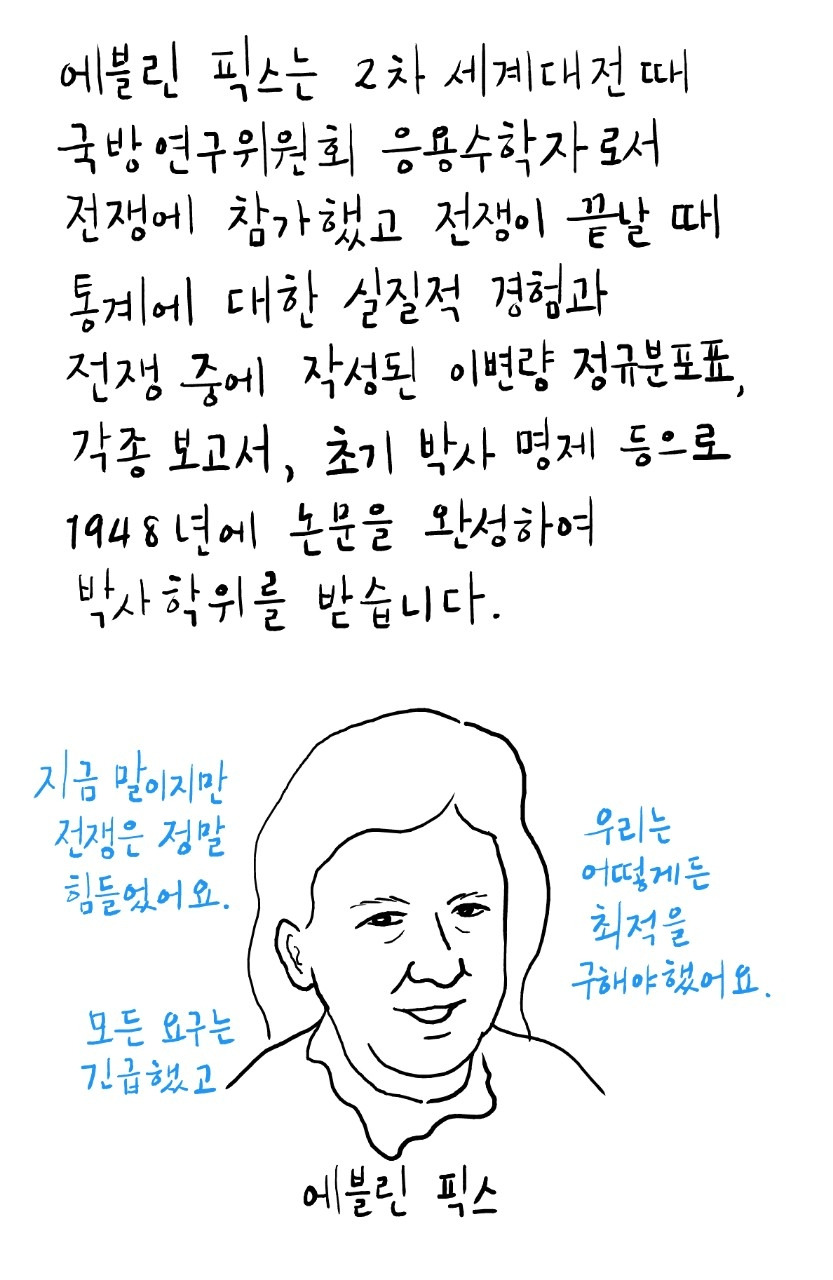 에블린 픽스는 2차 세계대전 때
국방연구위원회 응용수학자로서
전쟁에 참가했고 전쟁이 끝날 때
통계에 대한 실질적 경험과
전쟁 중에 작성된 이변량 정규분포표,
각종 보고서, 초기 박사 명제 등으로
1948년에 논문을 완성하여
박사학위를 받습니다.
지금 말이지만
전쟁은 정말
힘들었어요.
모든 요구는
긴급했고
우리는
어떻게든
최적을
구해야했어요.
에블린 픽스